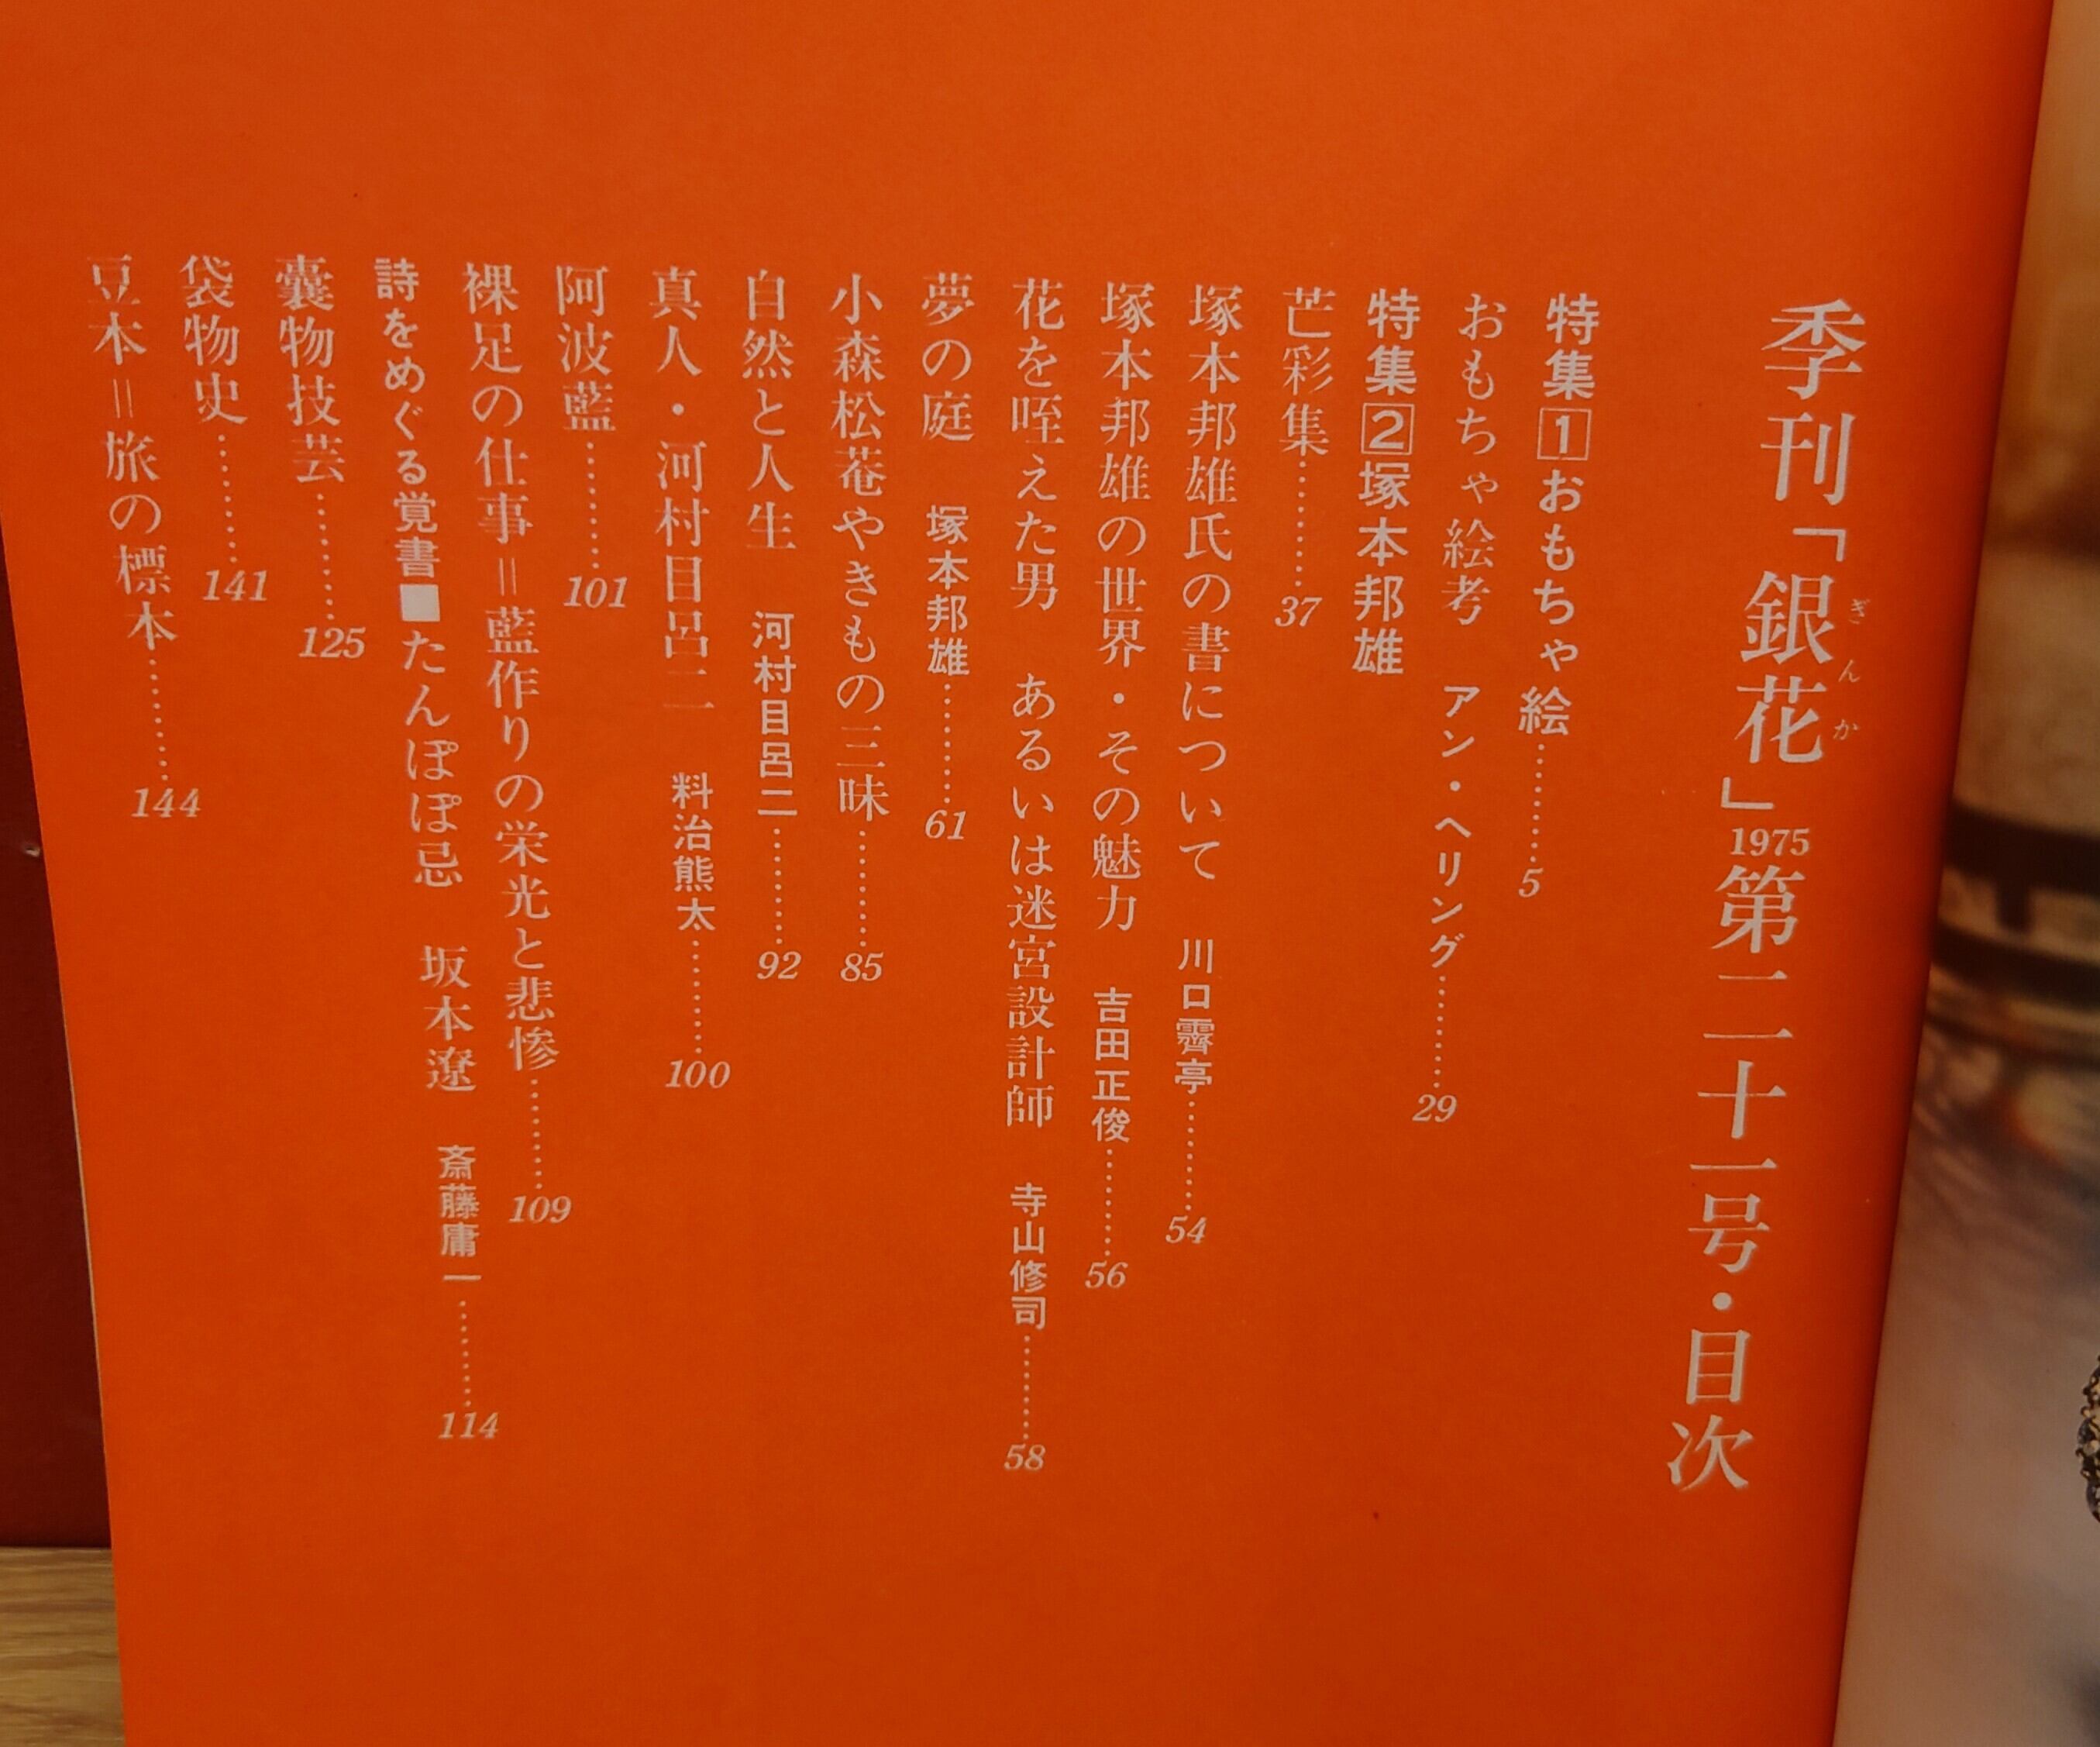 季刊「銀花」1975第二十一号・目次
ぎんか
特集1おもちゃ絵………5
おもちゃ絵考 アン・ヘリング………29
特集2塚本邦雄
芒彩集………37
塚本邦雄氏の書について 川口霽亭………54
塚本邦雄の世界・その魅力 吉田正俊………56
花を咥えた男 あるいは迷宮設計師 寺山修司………58
夢の庭 塚本邦雄………61
小森松菴やきもの三昧………85
自然と人生 河村目呂二………92
真人・河村目呂二 料治熊太………100
阿波藍………101
裸足の仕事＝藍作りの栄光と悲惨………109
詩をめぐる覚書■たんぽぽ忌 坂本遼 斎藤庸一………114
嚢物技芸………125
袋物史………141
豆本＝旅の標本………144